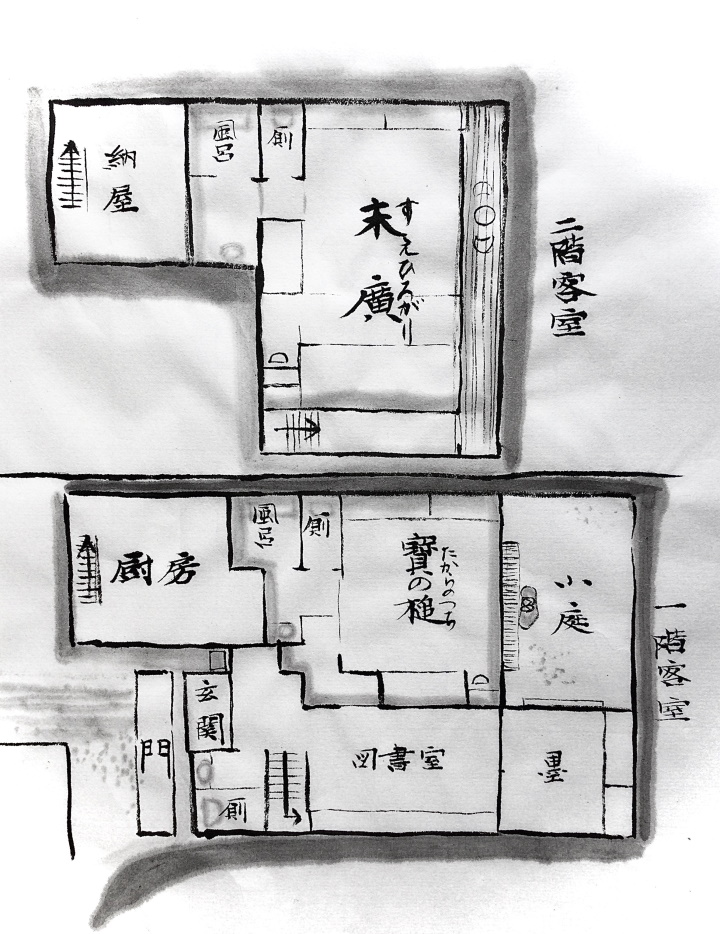 二階客室
納屋
風呂
厠
末廣
すえひろがり
一階客室
厨房
風呂
厠
寳の槌
たからのつち
小庭
玄関
門
図書室
墨
厠